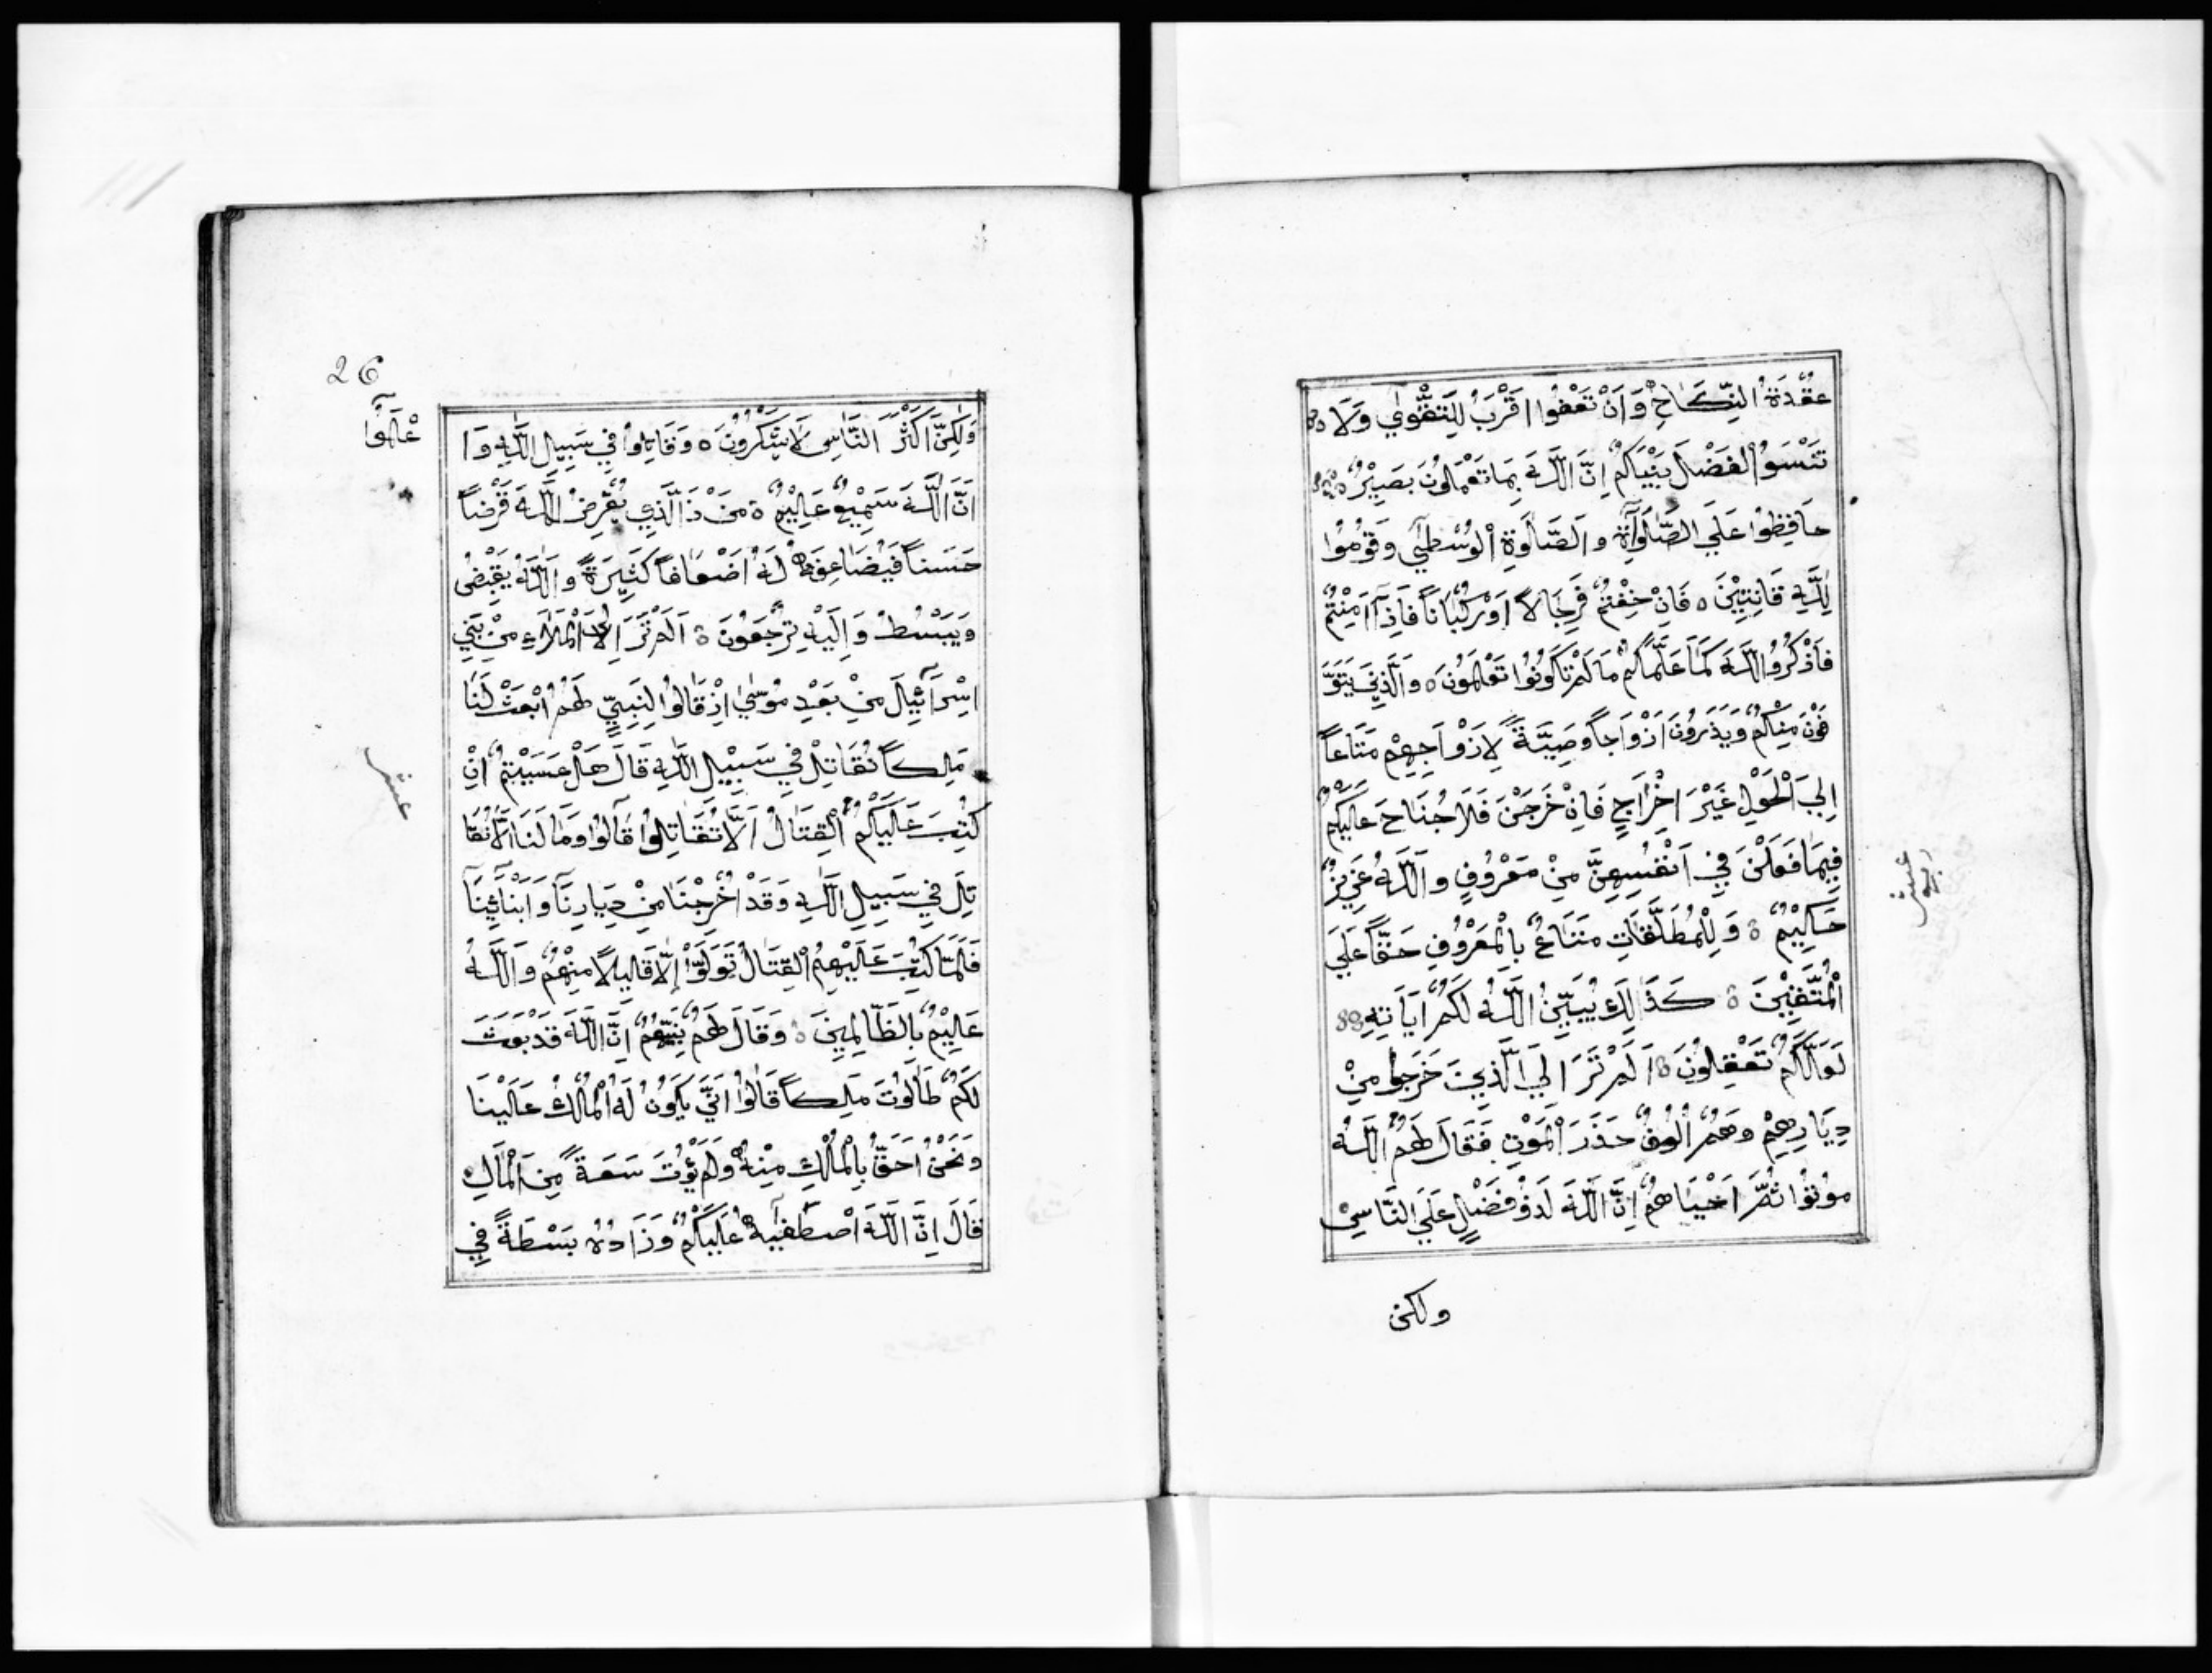 عُقْدَةُ النِّكَاحِ وَاَنْ تَعْفُوا اَقْرَبُ لِلتَّقْوٰي وَلَا ه
تَنْسَوُ الْفَضْلَ بَيْنَكُمْ اِنَّ اللّٰهَ بِمَا تَعْمَلُونَ بَصِيْرٌ ه
حَافِظُوا عَلَي الصَّلَوَاةِ وَالصَّلٰوةِ الْوُسْطٰي وَقُوْمُوا
لِلّٰهِ قَانِتِيْنَ ه فَاِنْ خِفْتُمْ فَرِجَالًا اَوْ رُكْبَاناً فَاِذَآ اَمِنْتُمْ
فَاَذْكُرُوا اللّٰهَ كَمَا عَلَّمَاكُمْ مَا لَمْ تَكُونُوْا تَعْلَمُونَ ه وَالَّذِيْنَ يَتَوَ
فَّوْنَ مِنْكُمْ وَيَذَرُوْنَ اَزْوَاجاً وَصِيَّةً لِاَزْوَاجِهِمْ مَتَاعاً
اِلَي الْحَوْلِ غَيْرَ اِخْرَاجٍ فَاِنْ خَرَجْنَ فَلَا جُنَاحَ عَلَيْكُمْ
فِيْمَا فَعَلْنَ فِي اَنْفُسِهِنَّ مِنْ مَعْرُوْفٍ وَاللّٰهُ عَزِيْزٌ
حَكِيْمٌ ه وَلِلْمُطَلَّقَاتِ مَتَاعٌ بِالْمَعْرُوْفِ حَقًّا عَلَي
الْمُتَّقِيْنَ ه كَذَالِكَ يُبَيِّنُ اللّٰهُ لَكُمْ اٰيَاتِهِ
لَعَلَّكُمْ تَعْقِلُوْنَ ه اَلَمْ تَرَ اِلَي الَّذِيْنَ خَرَجُوا مِنْ
دِيَارِهِمْ وَهُمْ اُلُوْفٌ حَذَرَ الْمَوْتِ فَقَالَ لَهُمُ اللّٰهُ
مُوْتُوْا ثُمَّ اَحْيَاهُمْ اِنَّ اللّٰهَ لَذُوْ فَضْلٍ عَلَي النَّاسِ
ولكن
عشر
26
وَلٰكِنَّ اَكْثَرَ النَّاسِ لَا يَشْكُرُوْنَ ه وَقَاتِلُوا فِي سَبِيْلِ اللّٰهِ وَا
عْلَمُوْا
اَنَّ اللّٰهَ سَمِيْعٌ عَلِيْمٌ ه مَنْ ذَا الَّذِي يُقْرِضُ اللّٰهَ قَرْضاً
حَسَناً فَيُضَاعِفَهُ لَهُ اَضْعَافاً كَثِيْرَةً وَاللّٰهُ يَقْبِضُ
وَيَبْسُطُ وَاِلَيْهِ تُرْجَعُوْنَ ه اَلَمْ تَرَ اِلَي الْمَلَاءِ مِنْ بَنِي
اِسْرَآئِيْلَ مِنْ بَعْدِ مُوْسٰي اِذْ قَالُوا لِنَبِيٍّ لَهُمُ ابْعَثْ لَنَا
مَلِكاً نُقَاتِلْ فِي سَبِيْلِ اللّٰهِ قَالَ هَلْ عَسَيْتُمْ اِنْ
كُتِبَ عَلَيْكُمُ الْقِتَالُ اَلَّا تُقَاتِلُوْا قَالُوْا وَمَا لَنَا اَلَّا نُقَا
تِلَ فِي سَبِيْلِ اللّٰهِ وَقَدْ اُخْرِجْنَا مِنْ دِيَارِنَا وَاَبْنَآئِنَا
فَلَمَّا كُتِبَ عَلَيْهِمُ الْقِتَالُ تَوَلَّوْا اِلَّا قَلِيْلًا مِنْهُمْ وَاللّٰهُ
عَلِيْمٌ بِالظَّالِمِيْنَ ه وَقَالَ لَهُمْ نَبِيُّهُمْ اِنَّ اللّٰهَ قَدْ بَعَثَ
لَكُمْ طَالُوْتَ مَلِكاً قَالُوْا اَنّٰي يَكُوْنُ لَهُ الْمُلْكُ عَلَيْنَا
وَنَحْنُ اَحَقُّ بِالْمُلْكِ مِنْهُ وَلَمْ يُؤْتَ سَعَةً مِنَ الْمَالِ
قَالَ اِنَّ اللّٰهَ اصْطَفٰيهُ عَلَيْكُمْ وَزَادَهُ بَسْطَةً فِي
عشر